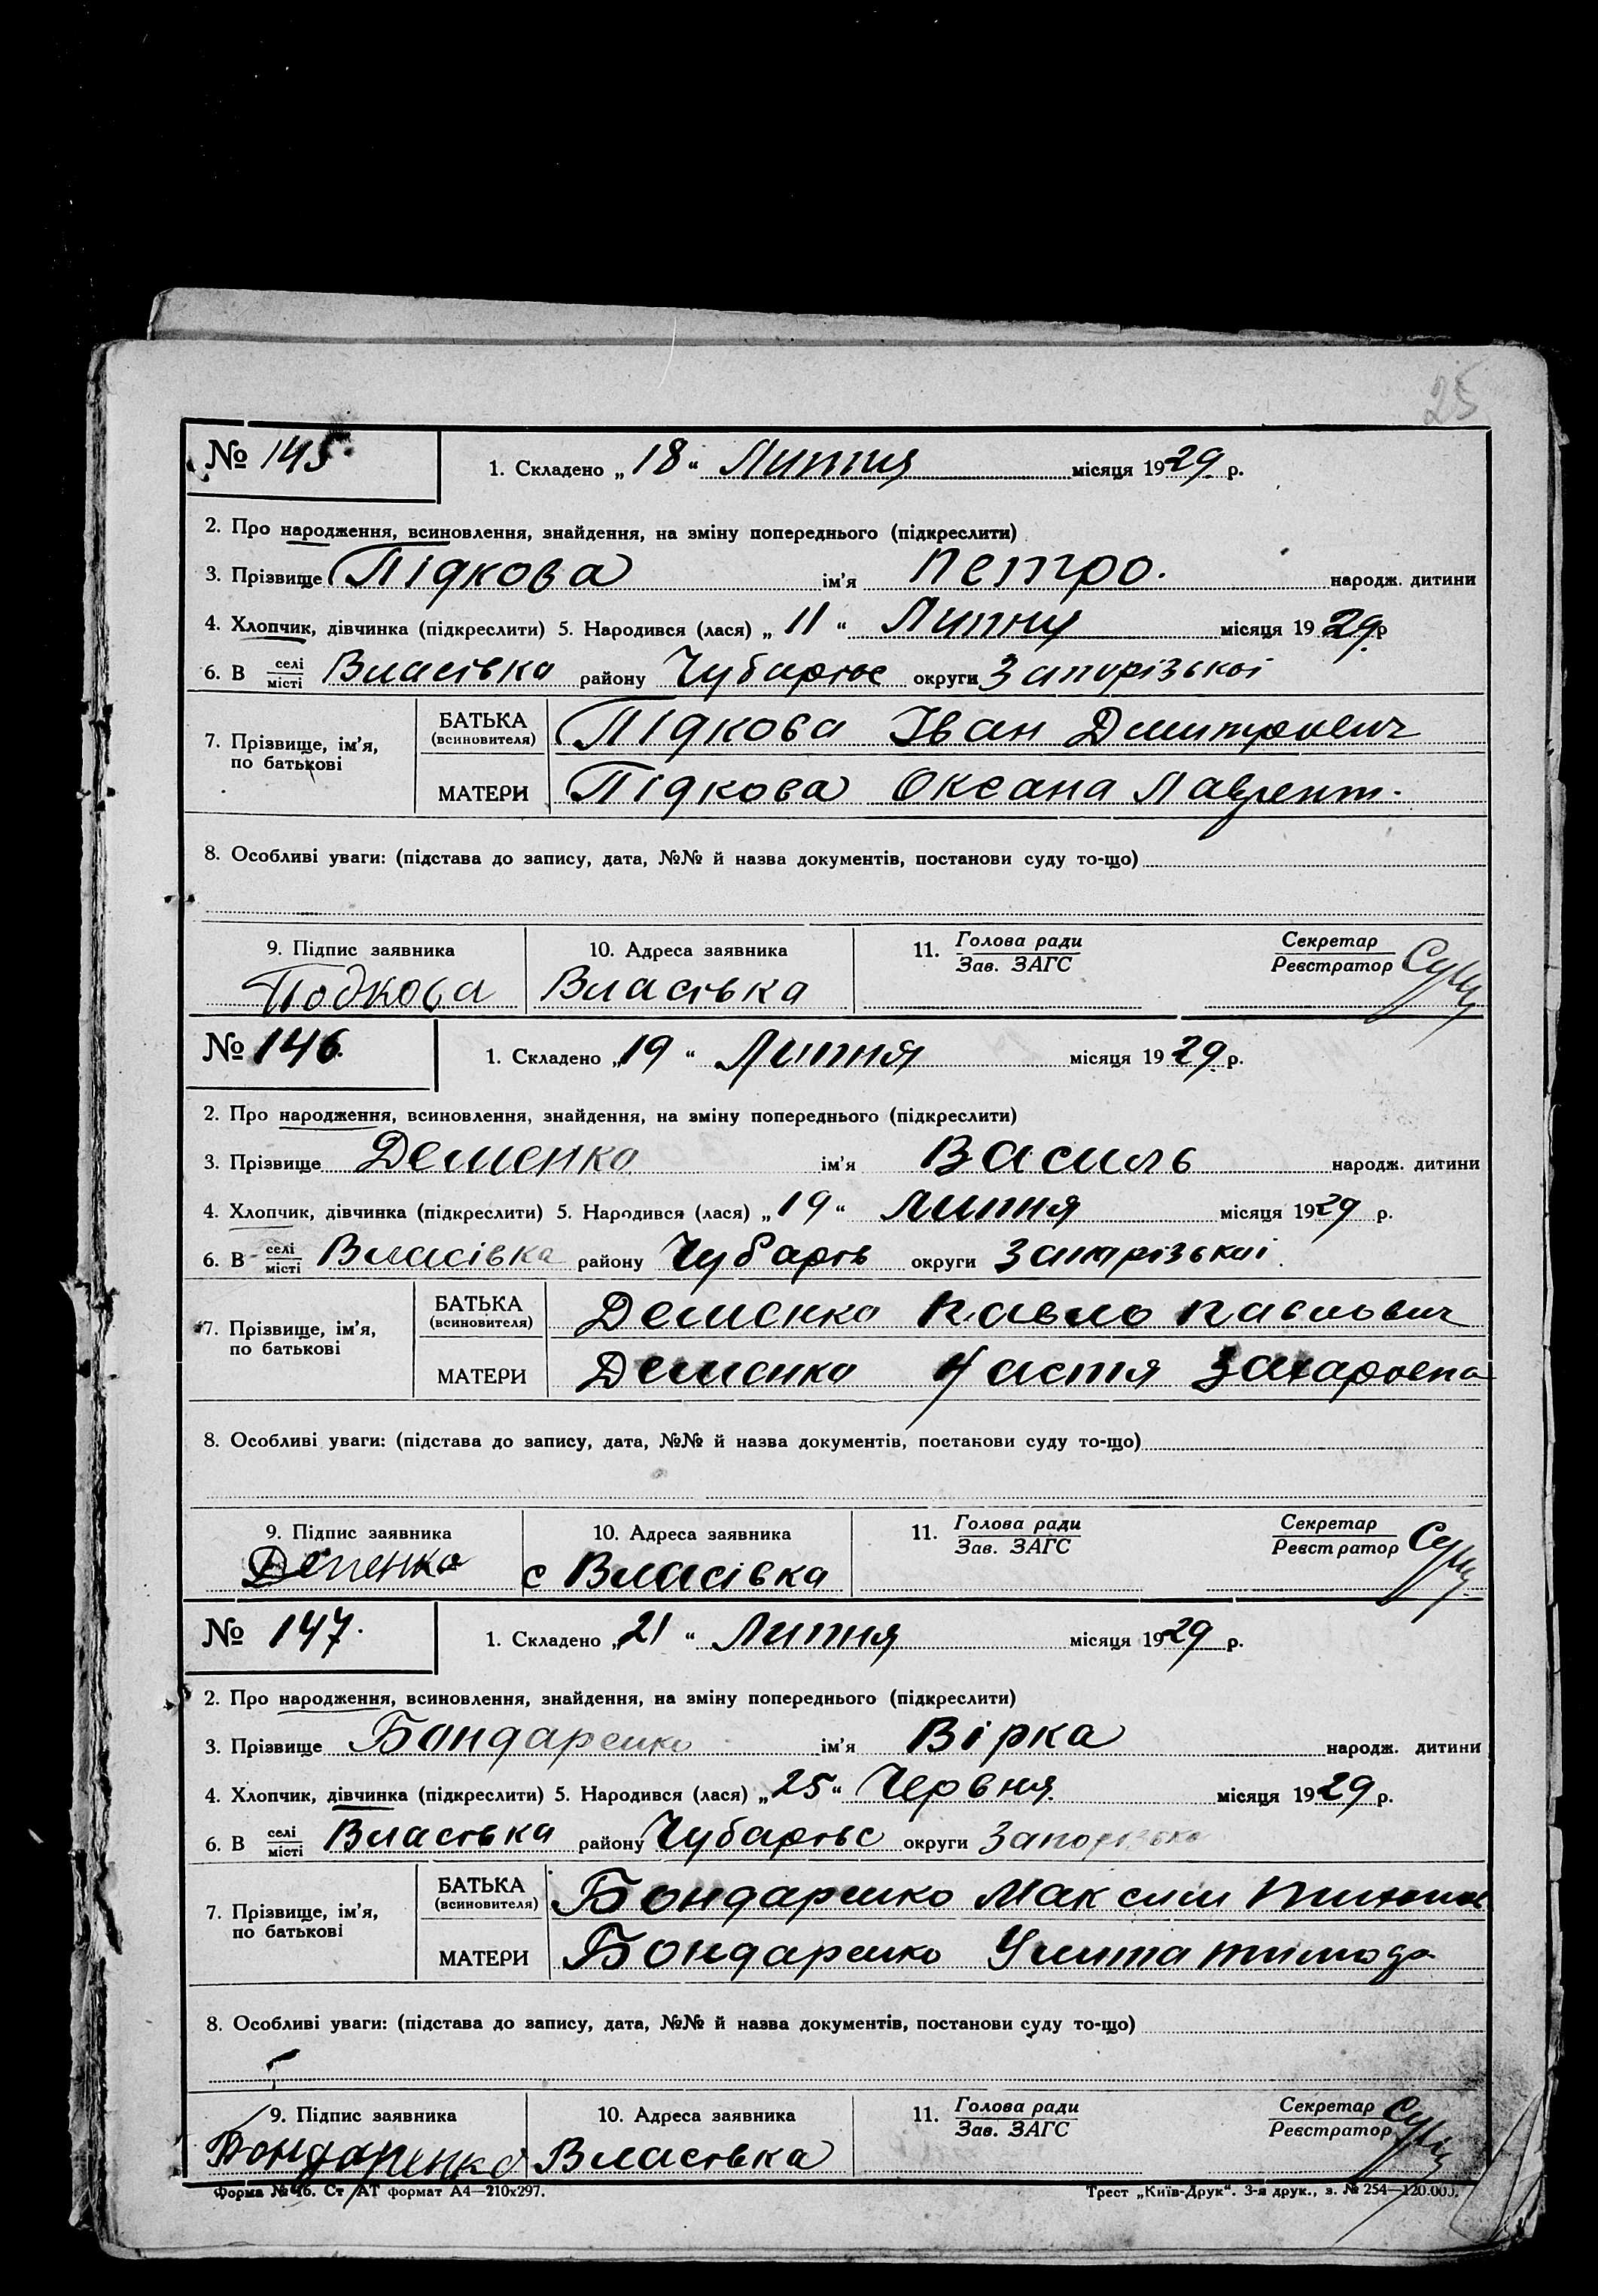 25
№ 145. 1. Складено „18“ Липня місяця 1929 р.
2. Про народження, всиновлення, знайдення, на зміну попереднього (підкреслити)
3. Прізвище Підкова ім’я Петро. народж. дитини
4. Хлопчик, дівчинка (підкреслити) 5. Народився (лася) „11“ Липня місяця 1929 р
6. В селі місті Власівка району округи Запорізької
7. Прізвище, ім’я, по батькові БАТЬКА (всиновителя) Підкова Іван Дмитрович
МАТЕРИ Підкова Оксана Лаврент.
8. Особливі уваги: (підстава до запису, дата, №№ й назва документів, постанови суду то-що)
9. Підпис заявника 10. Адреса заявника 11. Голова ради Зав. ЗАГС Секретар Реєстратор
Подкова Власівка
№ 146. 1. Складено „19“ Липня місяця 1929 р.
2. Про народження, всиновлення, знайдення, на зміну попереднього (підкреслити)
3. Прізвище Деменко ім’я Василь народж. дитини
4. Хлопчик, дівчинка (підкреслити) 5. Народився (лася) „19“ Липня місяця 1929 р.
6. В селі місті Власівка району Чубарів округи Запорізької
7. Прізвище, ім’я, по батькові БАТЬКА (всиновителя) Деменко Павло Павлович
МАТЕРИ Деменко Настя Захаровна
8. Особливі уваги: (підстава до запису, дата, №№ й назва документів, постанови суду то-що)
9. Підпис заявника 10. Адреса заявника 11. Голова ради Зав. ЗАГС Секретар Реєстратор
с Власівка
№ 147. 1. Складено „21“ Липня місяця 1929 р.
2. Про народження, всиновлення, знайдення, на зміну попереднього (підкреслити)
3. Прізвище Бондаренко ім’я Вірка народж. дитини
4. Хлопчик, дівчинка (підкреслити) 5. Народився (лася) „25“ Червня місяця 1929 р.
6. В селі місті Власівка району Чубарівс округи
7. Прізвище, ім’я, по батькові БАТЬКА (всиновителя) Бондаренко Максим
МАТЕРИ Бондаренко
8. Особливі уваги: (підстава до запису, дата, №№ й назва документів, постанови суду то-що)
9. Підпис заявника 10. Адреса заявника 11. Голова ради Зав. ЗАГС Секретар Реєстратор
Бондаренко Власівка
Форма № 46. Ст АТ формат А4—210х297. Трест „Київ-Друк“. 3-я друк., з. № 254—120.000.